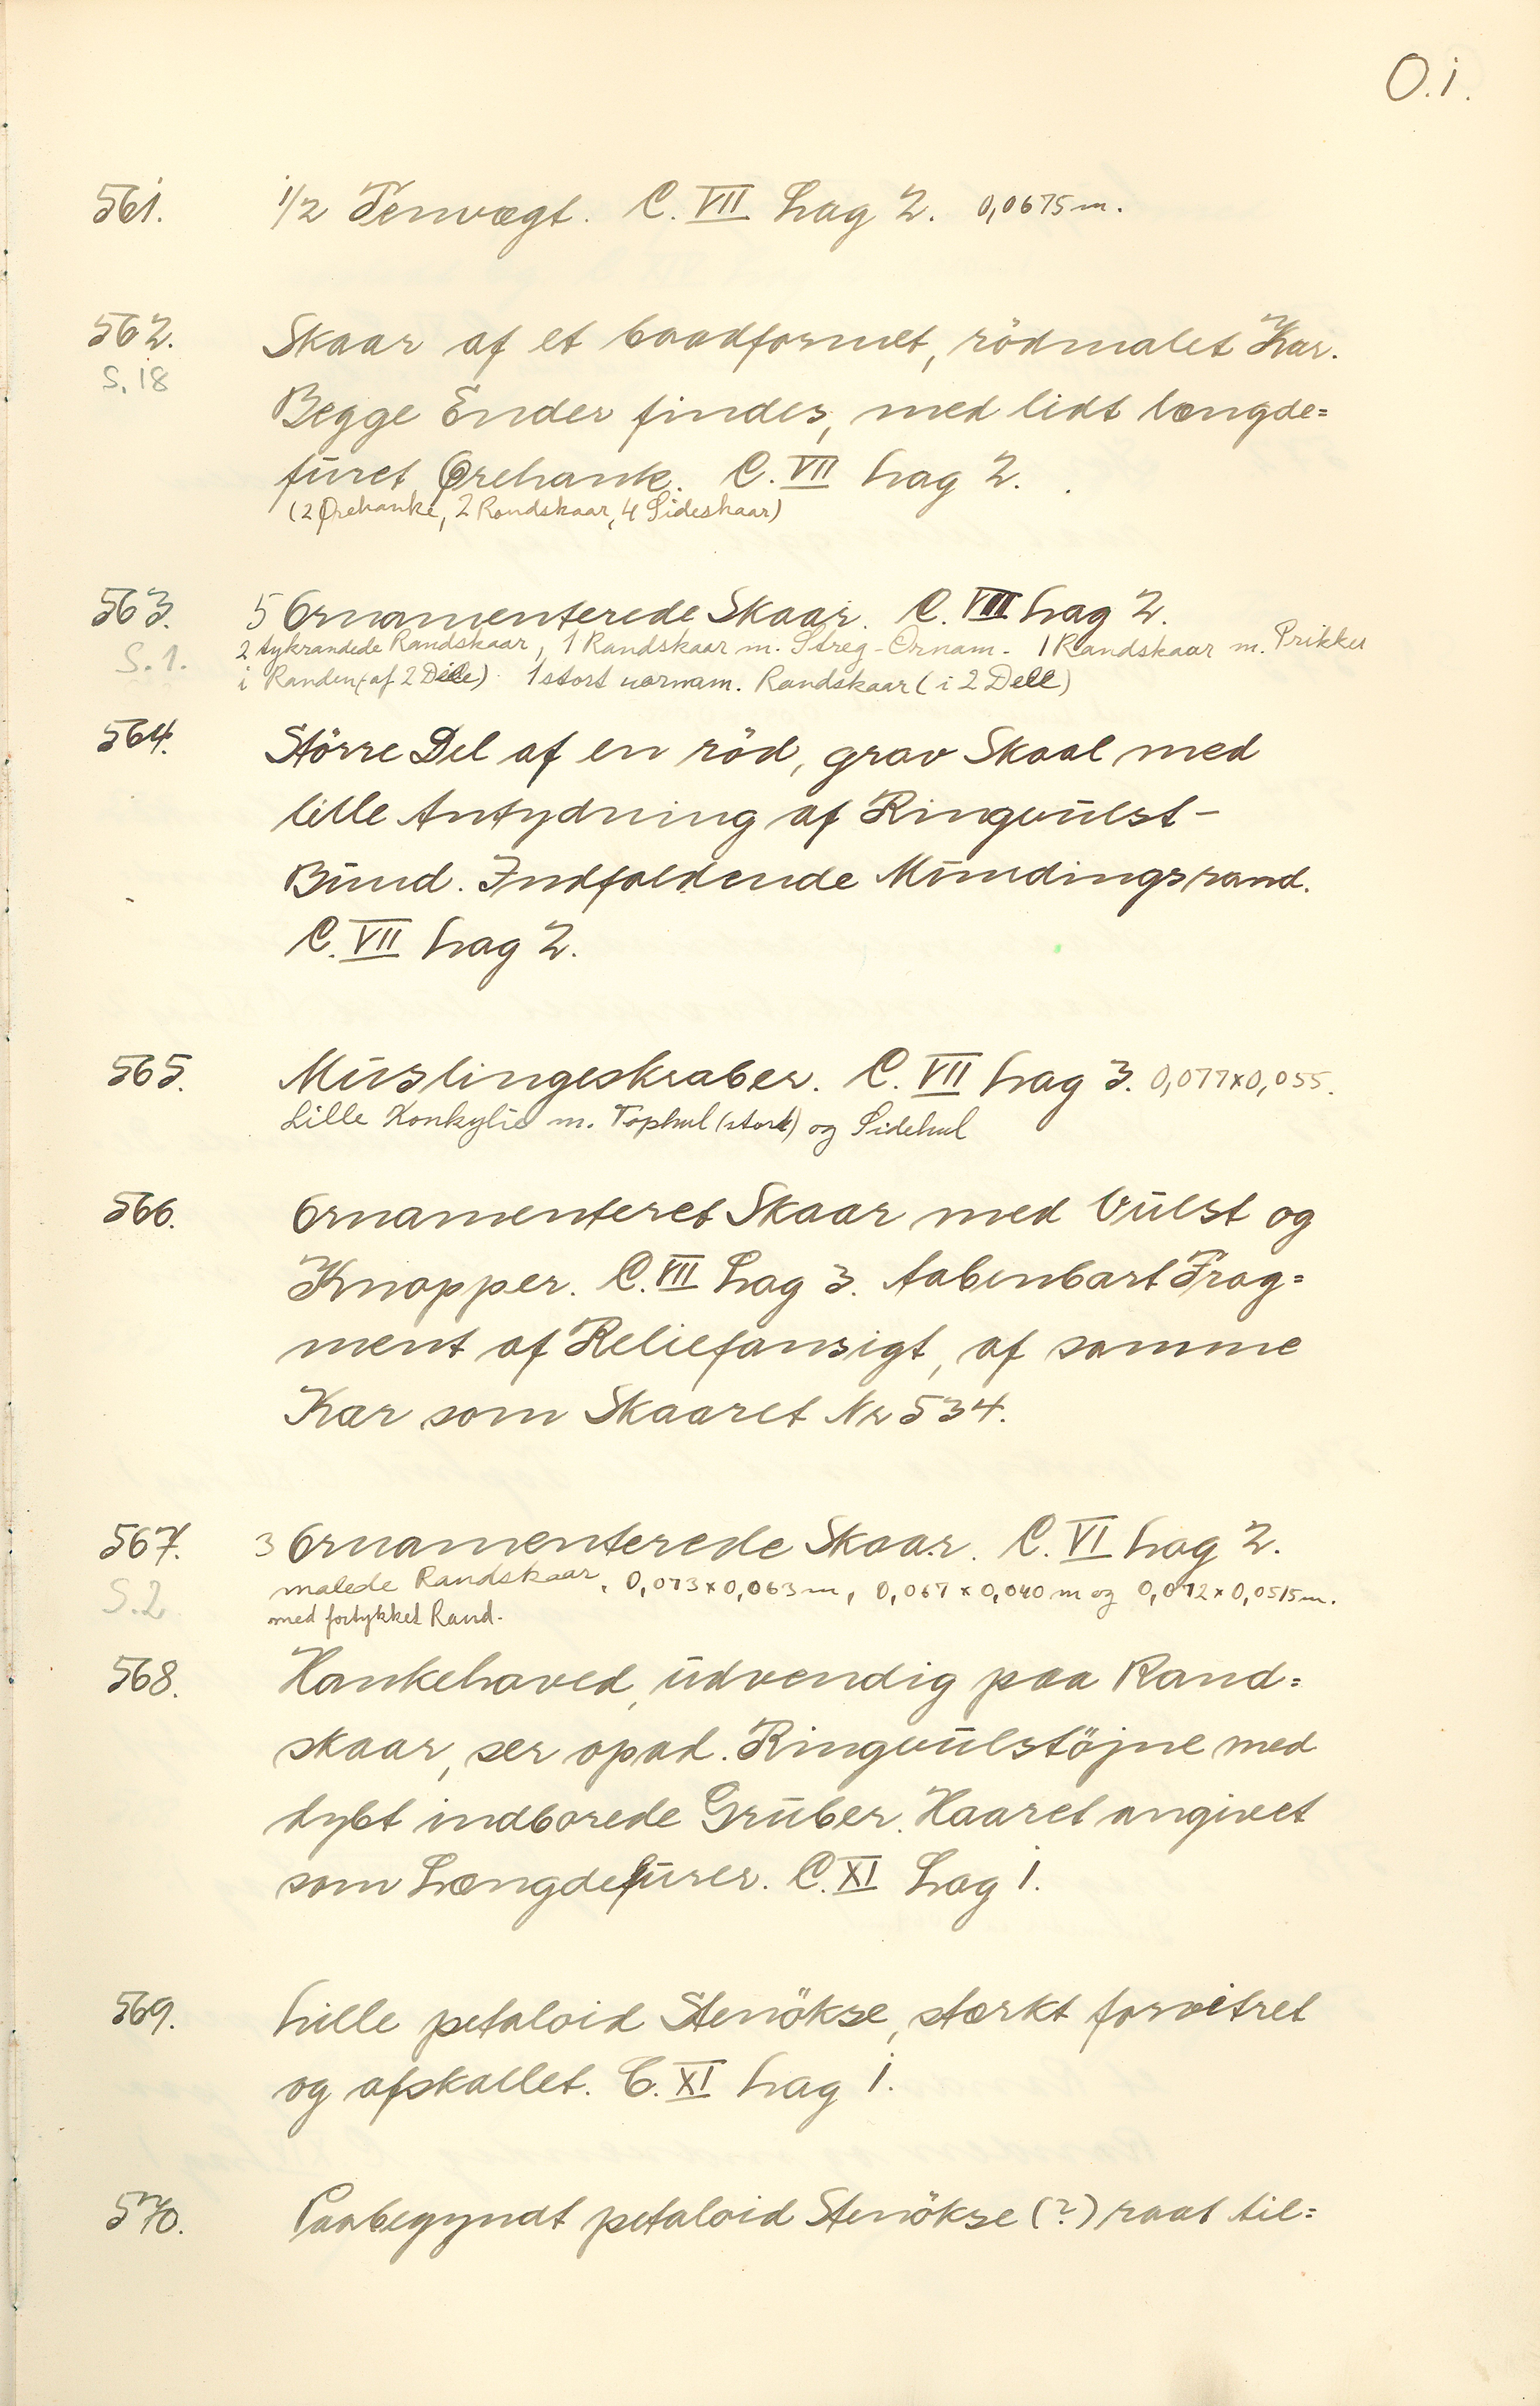 O.i.
561. 1/2 Tenvægt. C. VII Lag 2. 0,0675 m.
562. Skaar af et baadformet, rödmalet Kar.
S. 18
Begge Ender findes, med lidt længde=
furet Ørehank. C. VII Lag 2.
(2 Ørehanke, 2 Randskaar, 4 Sideskaar)
563. 5 Ornamenterede Skaar. C. VII Lag 2.
S. 1. 2 tykrandede Randskaar, 1 Randskaar m. Streg-Ornam. 1 Randskaar m. Prikker
i Randen (af 2 Dele) 1 stort uornam. Randskaar (i 2 Dele)
564. Större Del af en röd, grov Skaal med
lille Antydning af Ringvulst-
Bund. Indfaldende Mundingsrand.
C. VII Lag 2.
565. Muslingeskraber. C. VII Lag 3. 0,077x0,055.
Lille Konkylie m. Tophul (stort) og Sidehul
566. Ornamenteret Skaar med Vulst og
Knopper. C. VII Lag 3. Aabenbart Frag=
ment af Reliefansigt, af samme
Kar som Skaaret Nr 534.
567. 3 Ornamenterede Skaar. C. VI Lag 2.
malede Randskaar, 0,073x0,063 m, 0,067x0,040 m og 0,072x0,0515 m.
S. 2 med fortykket Rand.
568. Hankehoved, udvendig paa Rand=
skaar, ser opad. Ringvulstöjne med
dybt indborede Gruber. Haaret angivet
som Længdefurer. C. XI Lag 1.
569. Lille petaloid Stenökse, stærkt forvitret
og afskallet. C. XI Lag 1.
570. Paabegyndt petaloid Stenökse (?) raat til=